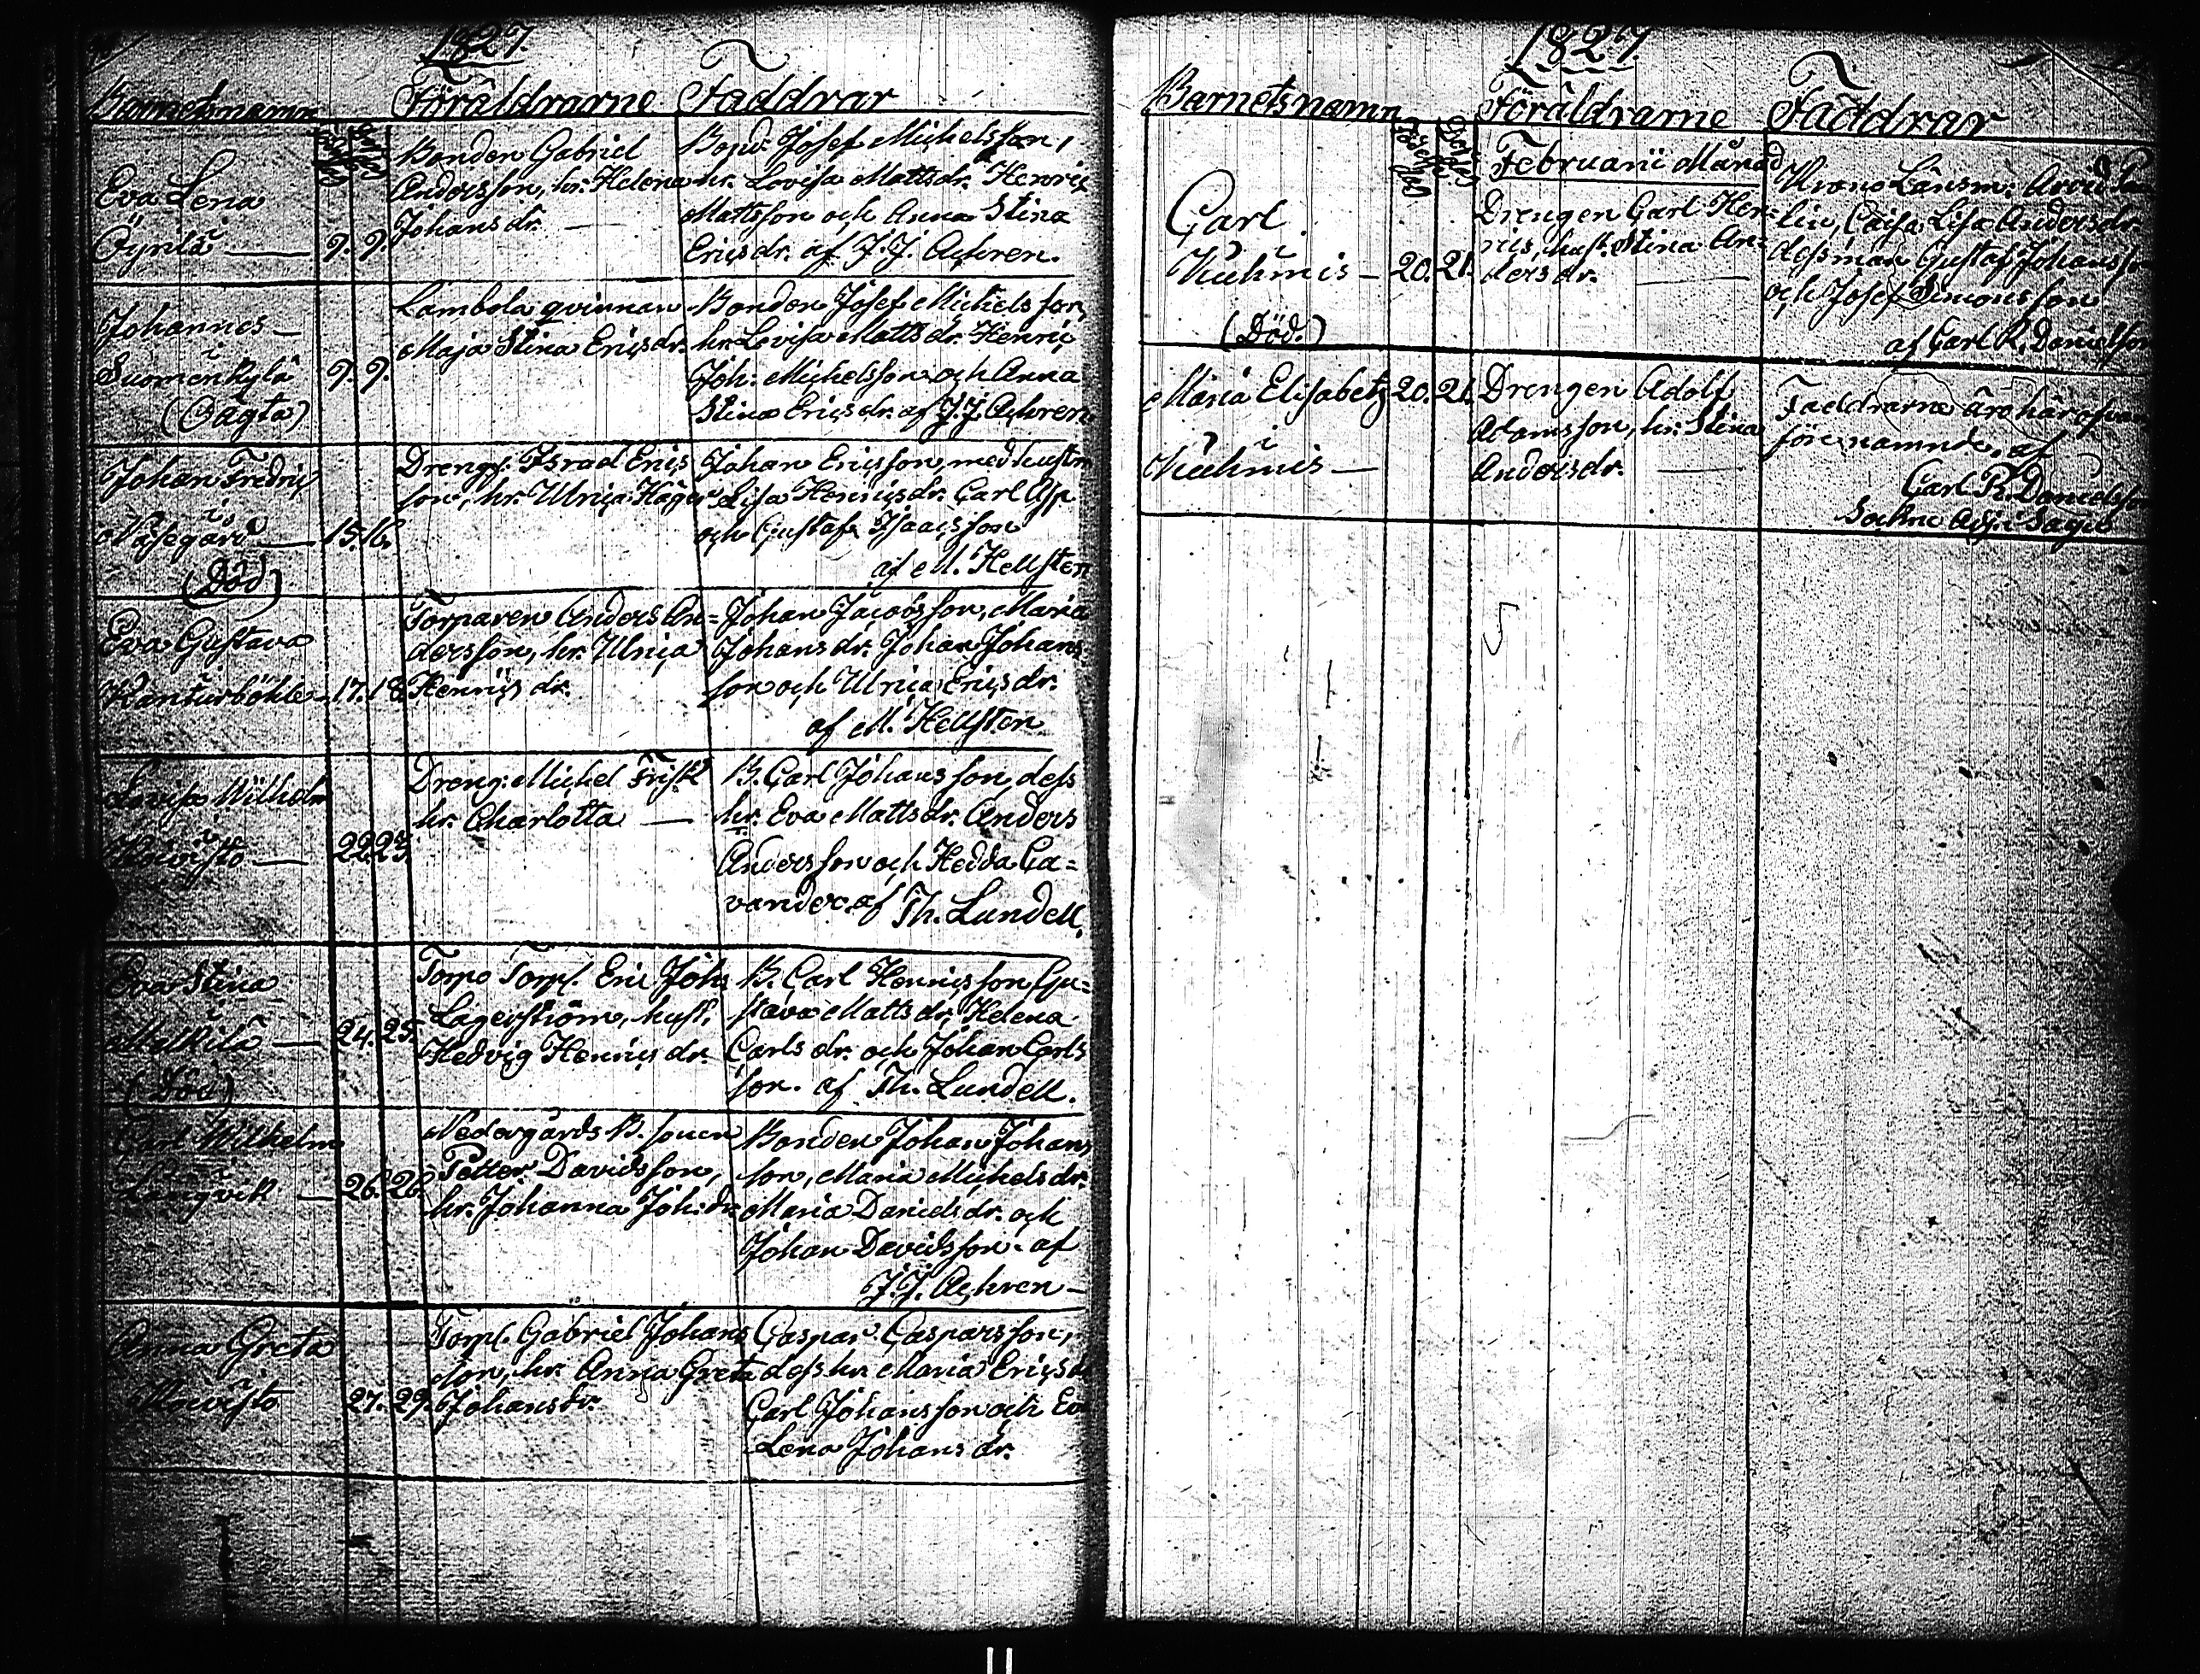 1827.
Barnetsnamn Föräldrarne Faddrar
Eva Lena
i
Öyrilä — 9. 9.
Bonden Gabriel
Andersson, hr. Helena
Johansdr. —
Bond. Josef Michelsson,
hr. Lovisa Mattsdr. Henric
Mattsson och Anna Stina
Ericsdr. af J. J. Achren.
Johannes —
i
Suomenkylä 9. 9.
(Oägta)
Lambola qvinnan
Maja Stina Ericsdr.
Bonden Josef Michelsson,
hr. Lovisa Mattsdr. Henric
Joh: Michelsson och Anna
Stina Ericsdr. af J. J. Achren
Johan Fredric
i
Näsegård — 15. 16.
(Död)
Drengs. Israel Erics
son, hr. Ulrica Häger
Johan Ericsson, med hustru
Lisa Henricsdr. Carl Asp
och Gustaf Isaacsson
af M. Hellsten
Eva Gustava
Kanturböhle — 17. 18.
Torparen Anders An=
dersson, hr. Ulrica
Henrics dr.
Johan Jacobsson, Maria
Johansdr. Johan Johans
son och Ulrica Ericsdr.
af M. Hellsten
Lovisa Wilhelm
i
Koivisto — 22. 23.
Dreng: Michel Frisk
hr. Charlotta —
B. Carl Johansson, dess
hr. Eva Mattsdr. Anders
Andersson och Hedda Ca=
vander. af Th. Lundell.
Eva Stina
i
— 24. 25.
(Död)
Torp. Eric Johs
Lagerström, hust.
Hedvig Henrics dr.
B. Carl Henricsson, Gu=
stava Mattsdr, Helena
Carlsdr. och Johan Carls
son. af Th. Lundell.
Carl Wilhelm
i
Långvik — 26. 26.
Nedergårds B. sonen
Petter Davidsson,
hr. Johanna Joh: dr.
Bonden Johan Johans
son, Maria Michelsdr.
Maria Danielsdr. och
Johan Davidsson. af
J. J. Achren —
Anna Greta
i
Koivisto 27. 29.
Torp. Gabriel Johans
son, hr. Anna Greta
Johansdr.
Caspar Casparsson,
dess hr Maria Ericsd
Carl Johansson och Eva
Lena Johansdr.
1827.
Barnetsnamn Föräldrarne Faddrar
Februarii Månad
Carl
i
Kuhmis — 20. 21.
(Död.)
Drengen Carl Hen=
ric, hust. Stina An=
dersdr. —
Krono Länsm: Arvid
lin, Caisa Lisa Andersdr
Gustaf Johansson
och Josef Simonsson
af Carl R. Danielson
Maria Elisabeth 20. 21.
i
Kuhmis —
Drengen Adolf
Adamsson, hr. Stina
Andersdr. —
Faddrarne äro här ofvan
före nämnde. af
Carl R. Danielsson
Sockne Adj: i Sagu